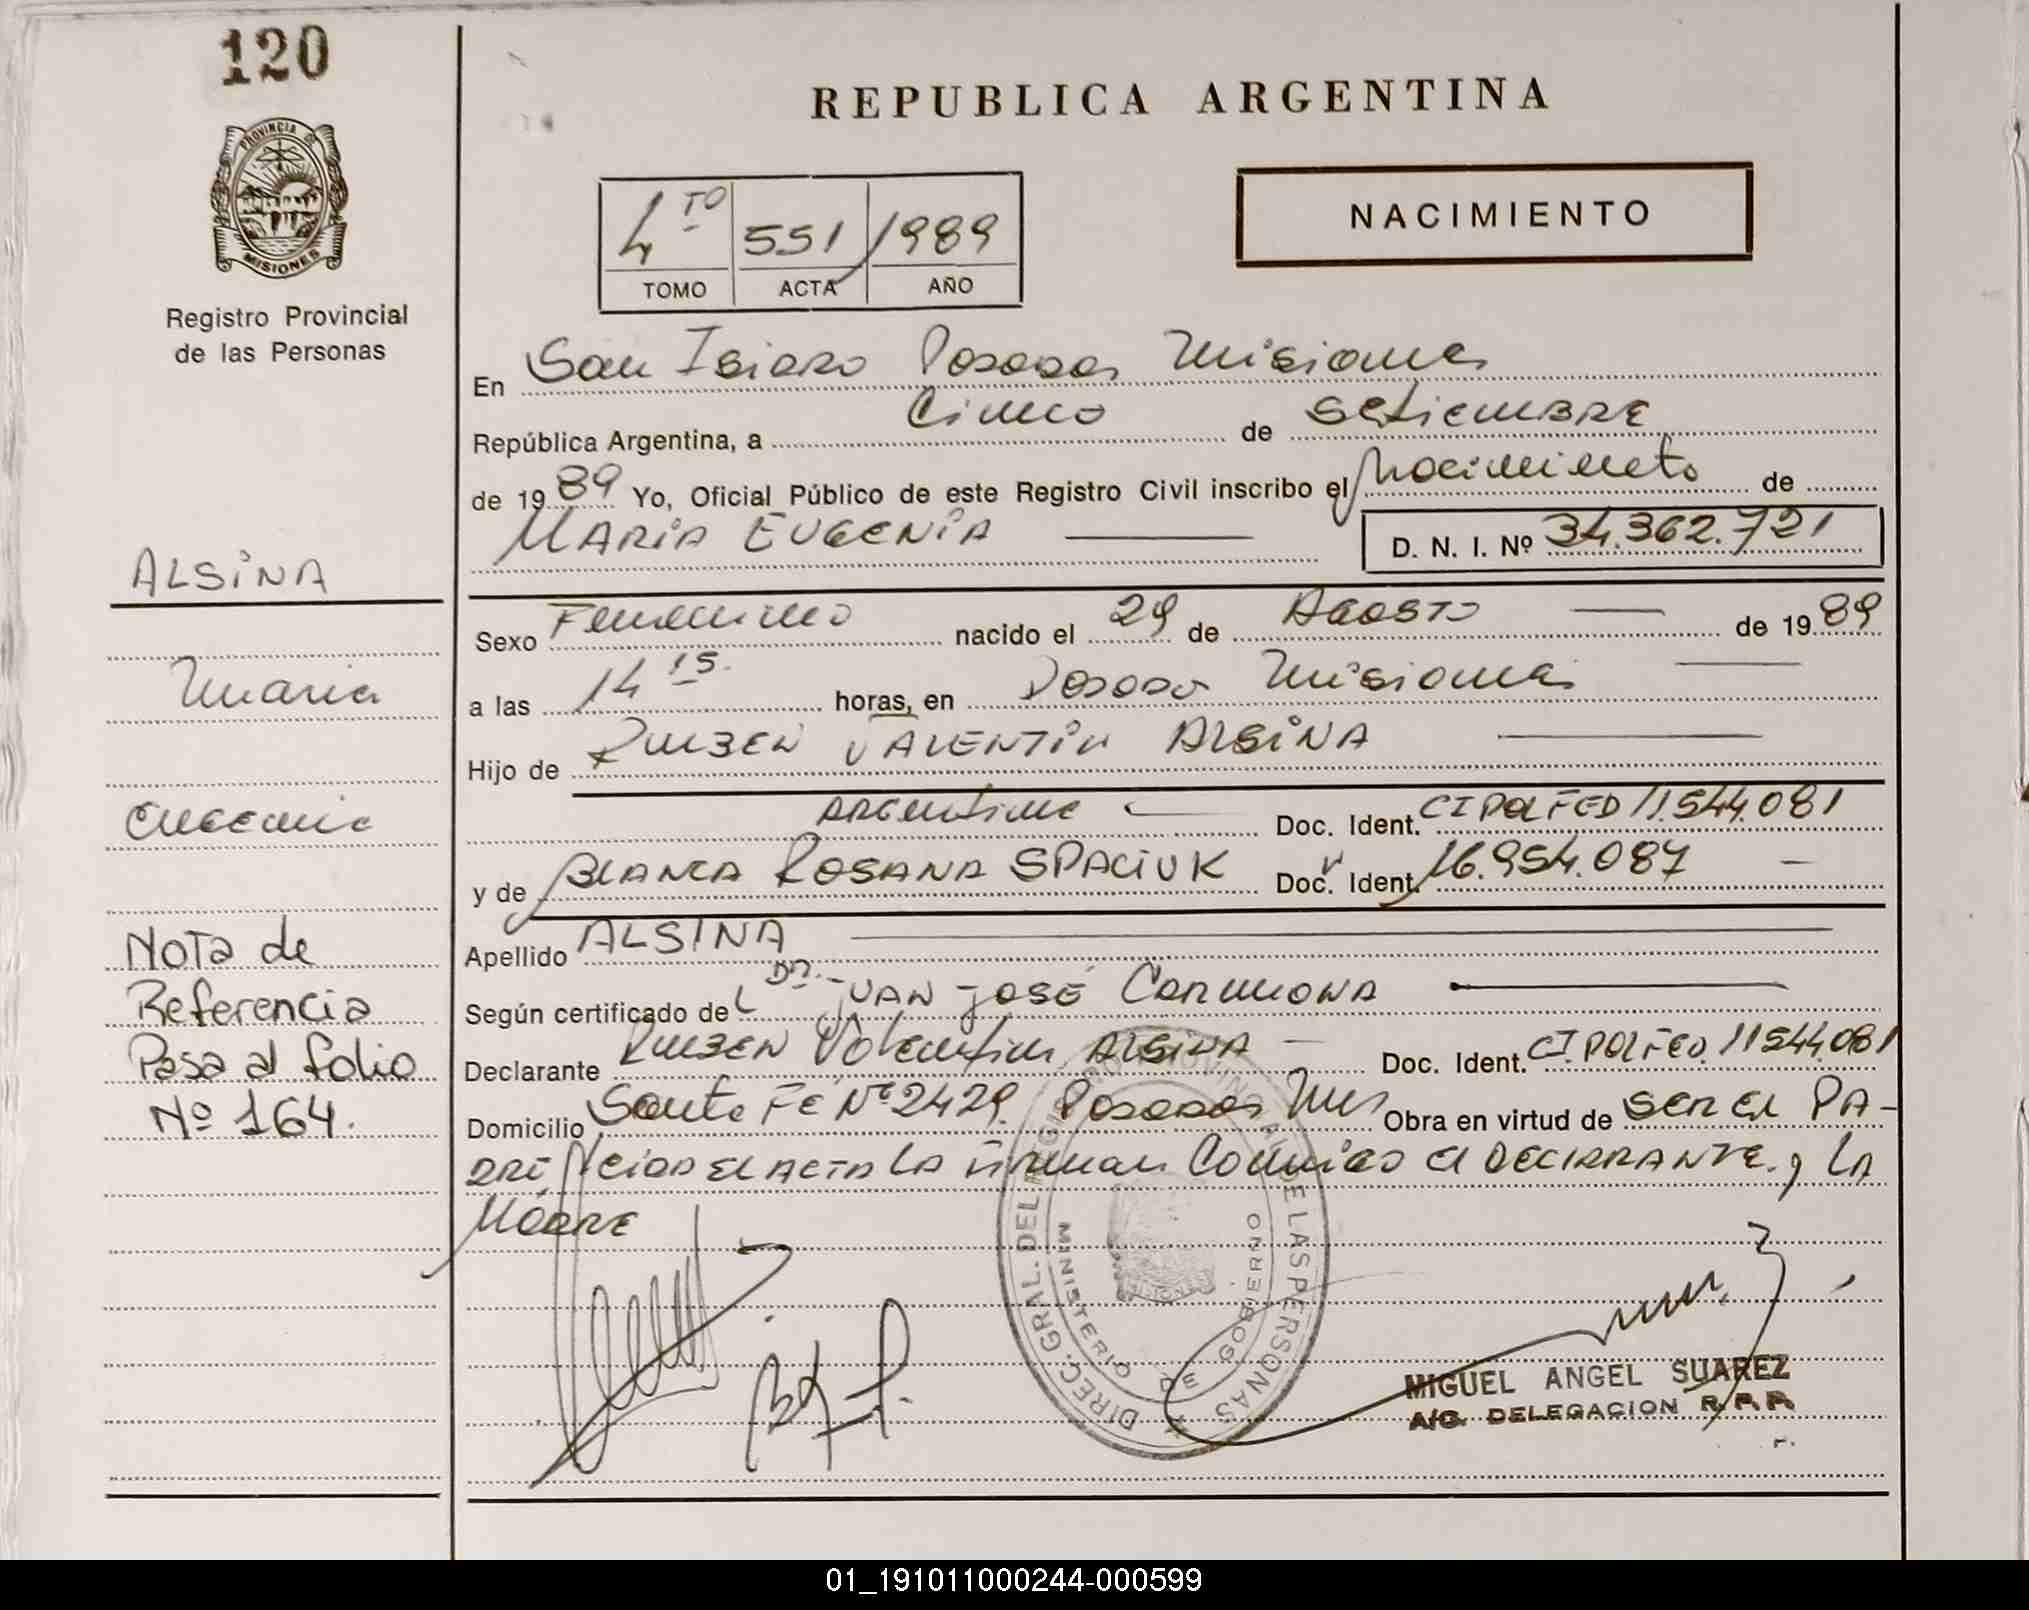 120
PROVINCIA DE
MISIONES
Registro Provincial
de las Personas
ALSINA
Maria
Eugenia
Nota de
Referencia
Pasa al folio
Nº 164.
REPUBLICA ARGENTINA
4 TO 551 / 1989
TOMO ACTA AÑO
NACIMIENTO
En San Isidro Posadas Misiones
República Argentina, a Cinco de Setiembre
de 1989 Yo, Oficial Público de este Registro Civil inscribo el nacimieto de
MARIA EUGENIA D. N. I. Nº 34.362.721
Sexo Femenino nacido el 29 de Agosto de 1989
a las 14 15. horas, en Posadas Misiones
Hijo de RUBEN VALENTIN ALSINA
Argentino Doc. Ident. CI POL FED 11.544.081
y de BLANCA ROSANA SPACIUK Doc. Ident. 16.954.087
Apellido ALSINA
Según certificado de Dr. JUAN JOSÉ CARMONA
Declarante RUBEN Valentin ALSINA Doc. Ident. CI. POL FED. 11544.081
Domicilio Santa FE Nº 2429. Posadas Mnes Obra en virtud de SER EL PA-
DRE, leida el acta la firman Conmigo el DECLARANTE y LA
MADRE
DIREC. GRAL. DEL REGISTRO PROVINCIAL DE LAS PERSONAS
MINISTERIO DE GOBIERNO
MIGUEL ANGEL SUAREZ
A/C. DELEGACION R. P. P.
01_191011000244-000599